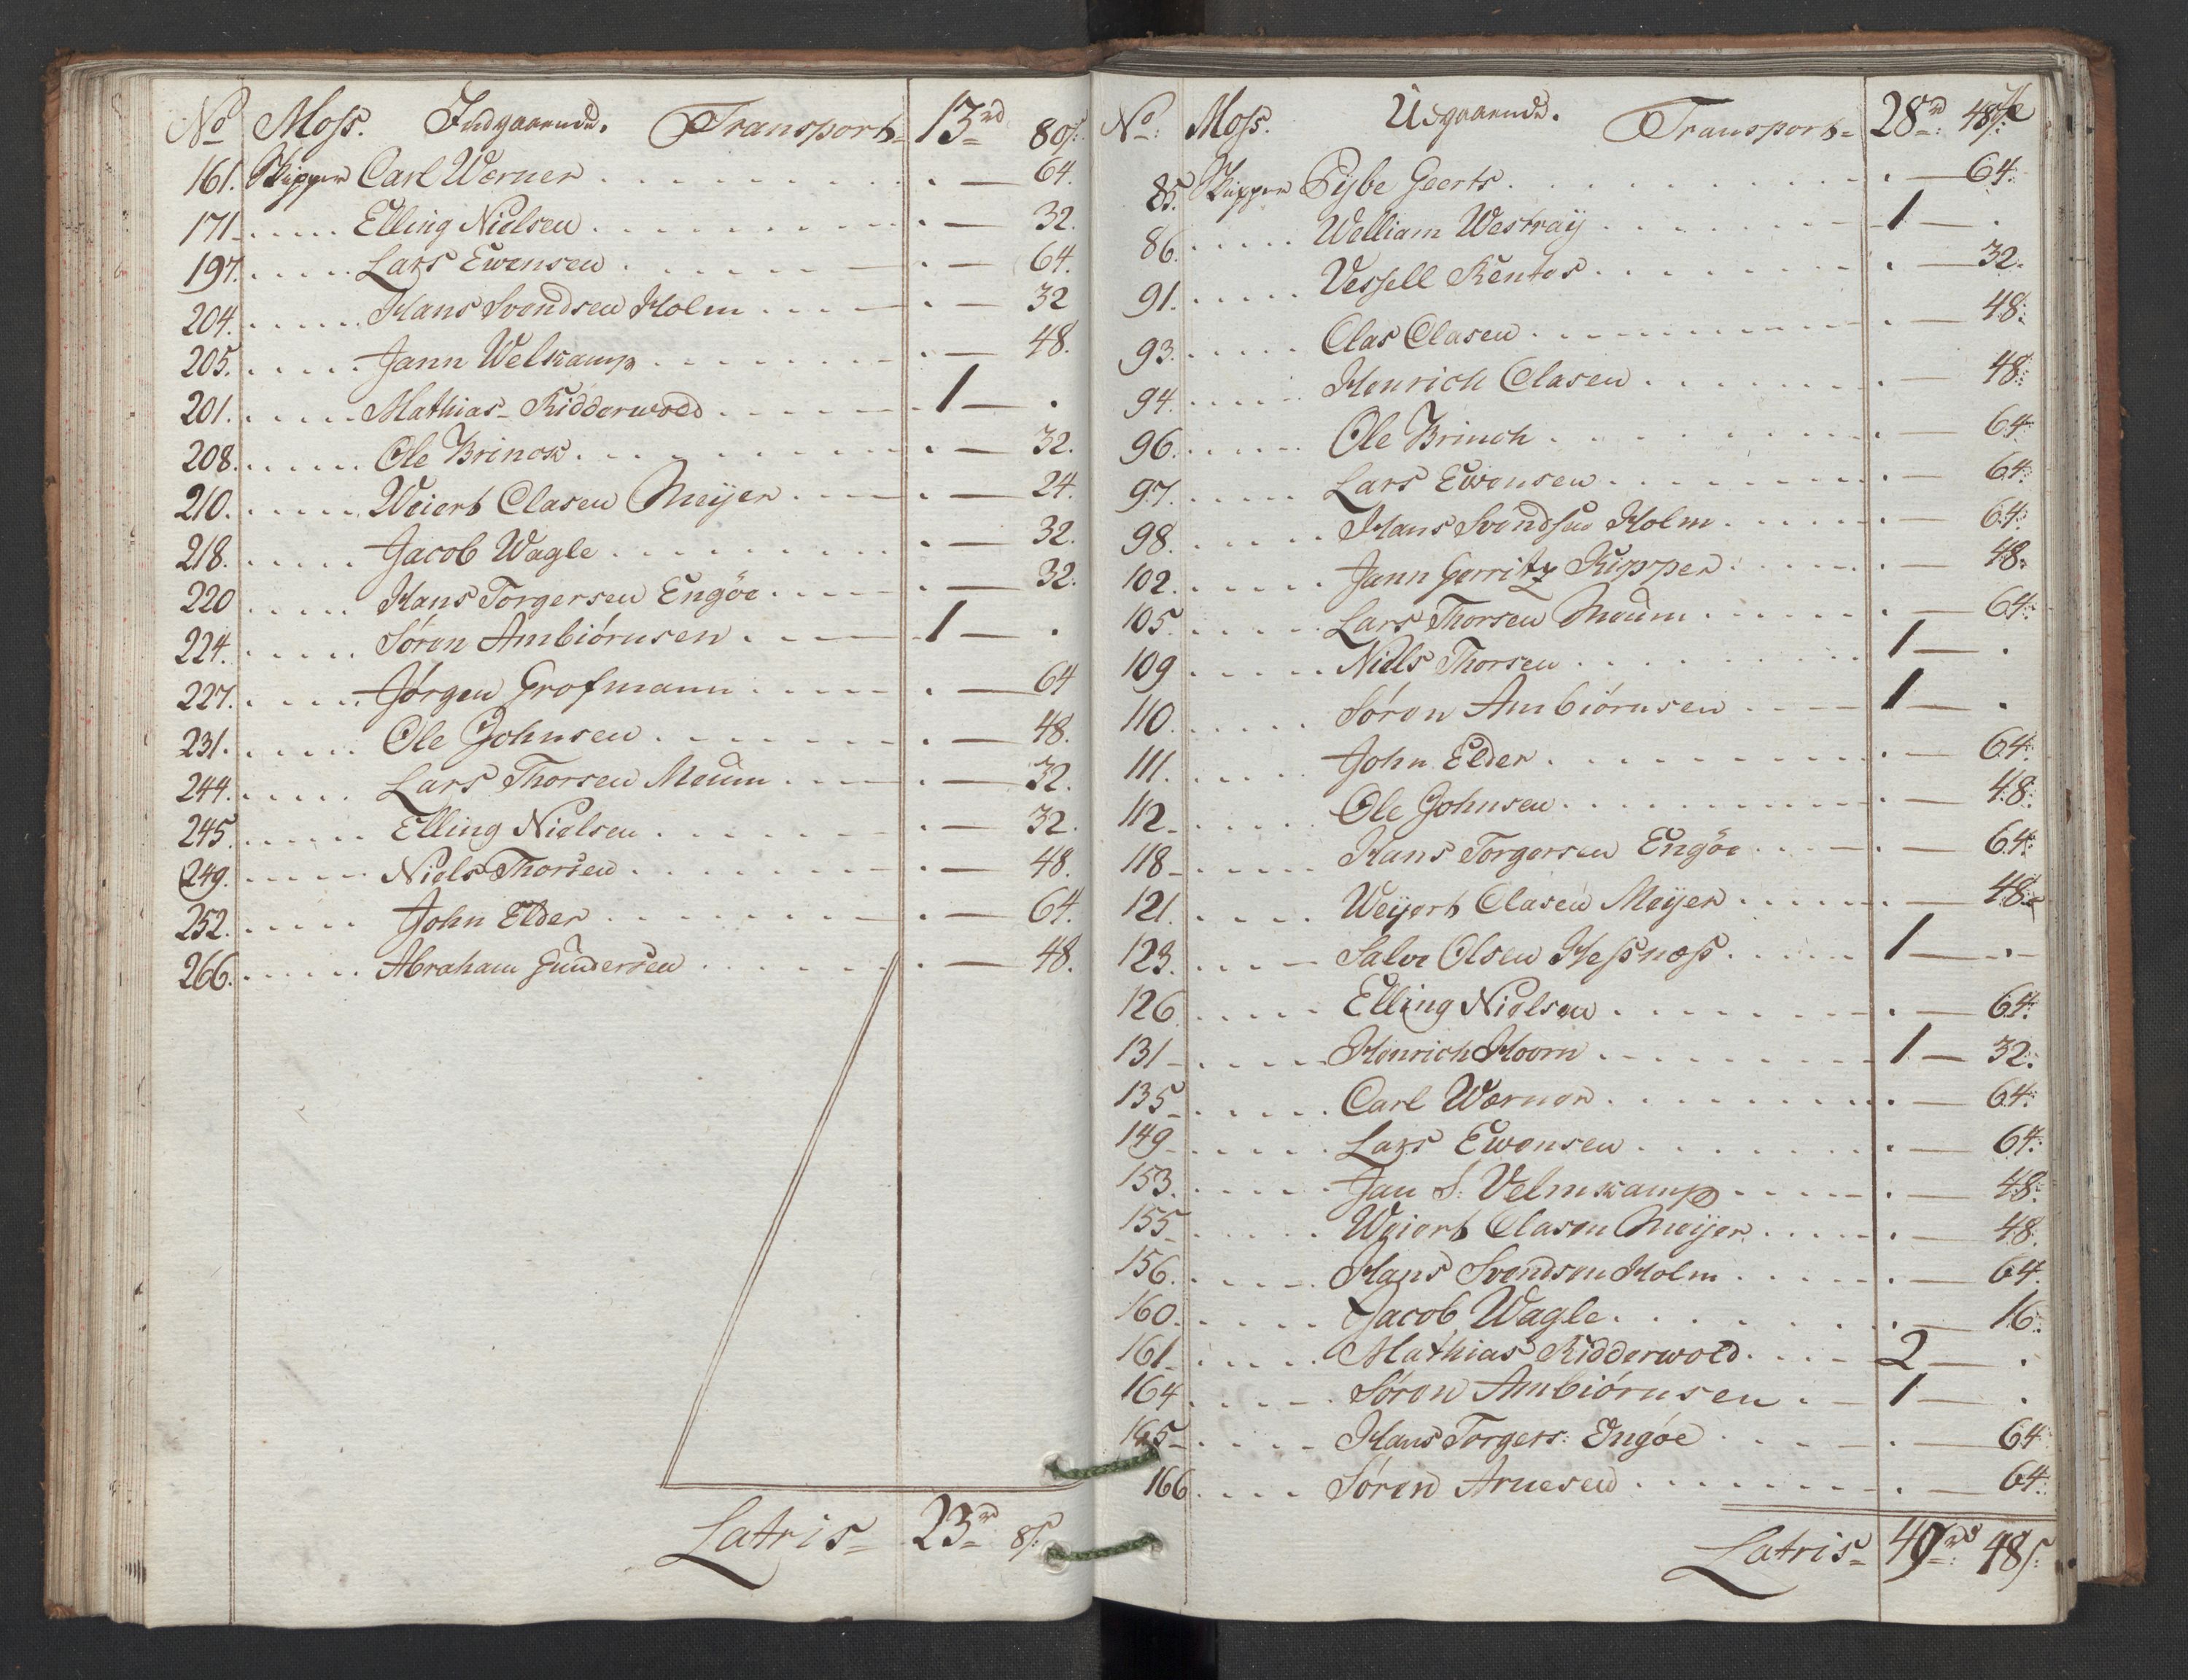 No Moss. Indgaaende. Transport 13rd 80s.
161. Skipper Carl Werner . — 64.
171. Elling Nielsen . — 32.
197. Lars Ewensen . — 64.
204. Hans Svendsen Holm . — 32
205. Jann Welkamp . — 48.
201. Mathias Ridderwold 1 — .
208. Ole Brinck . — 32.
210. Weiert Clasen Meijer . — 24.
218. Jacob Wagle . — 32.
220 Hans Torgersen Engöe . — 32.
224. Sören Ambiörnsen 1 — .
227. Jörgen Grofmann . — 64
231. Ole Johnsen . — 48.
244. Lars Thorsen Meum . — 32.
245. Elling Nielsen . — 32.
249. Niels Thorsen . — 48.
252. John Elder . — 64.
266. Abraham Gundersen . — 48.
Latris 23rd 8s.
No: Moss. Udgaaende. Transport 28rd: 48s
85. Skipper Pijbe Geerts . — 64.
86. Welliam Westraij 1 — .
91. Vessell Rentes . — 32.
93. Clas Clasen . — 48.
94. Henrich Clasen . — 48.
96. Ole Brinch . — 64.
97. Lars Ewensen . — 64.
98. Hans Svendsen Holm . — 64.
102. Jann Gerritz Kupper . — 48.
105. Lars Thorsen Meum . — 64.
109 Niels Thorsen 1 — .
110. Sören Ambiörnsen 1 — .
111. John Elder . — 64.
112. Ole Johnsen . — 48.
118 Hans Torgersen Engöe . — 64.
121. Weijert Clasen Meijer . — 48.
123. Salve Olsen Hessnæss 1 — .
126 Elling Nielsen . — 64.
131 Henrich Hoorn 1 — 32.
135 Carl Werner . — 64.
149 Lars Ewensen . — 64.
153. Jan S: Velmkamp . — 48.
155 Weiert Clasen Meijer . — 48.
156. Hans Svendsen Holm . — 64.
160. Jacob Wagle . — 16.
161 Mathias Ridderwold 2 — .
164 Sören Ambiörnsen 1 — .
165 Hans Torgers: Engöe . — 64
166 Sören Arnesen . — 64.
Latris 49rd: 48s.